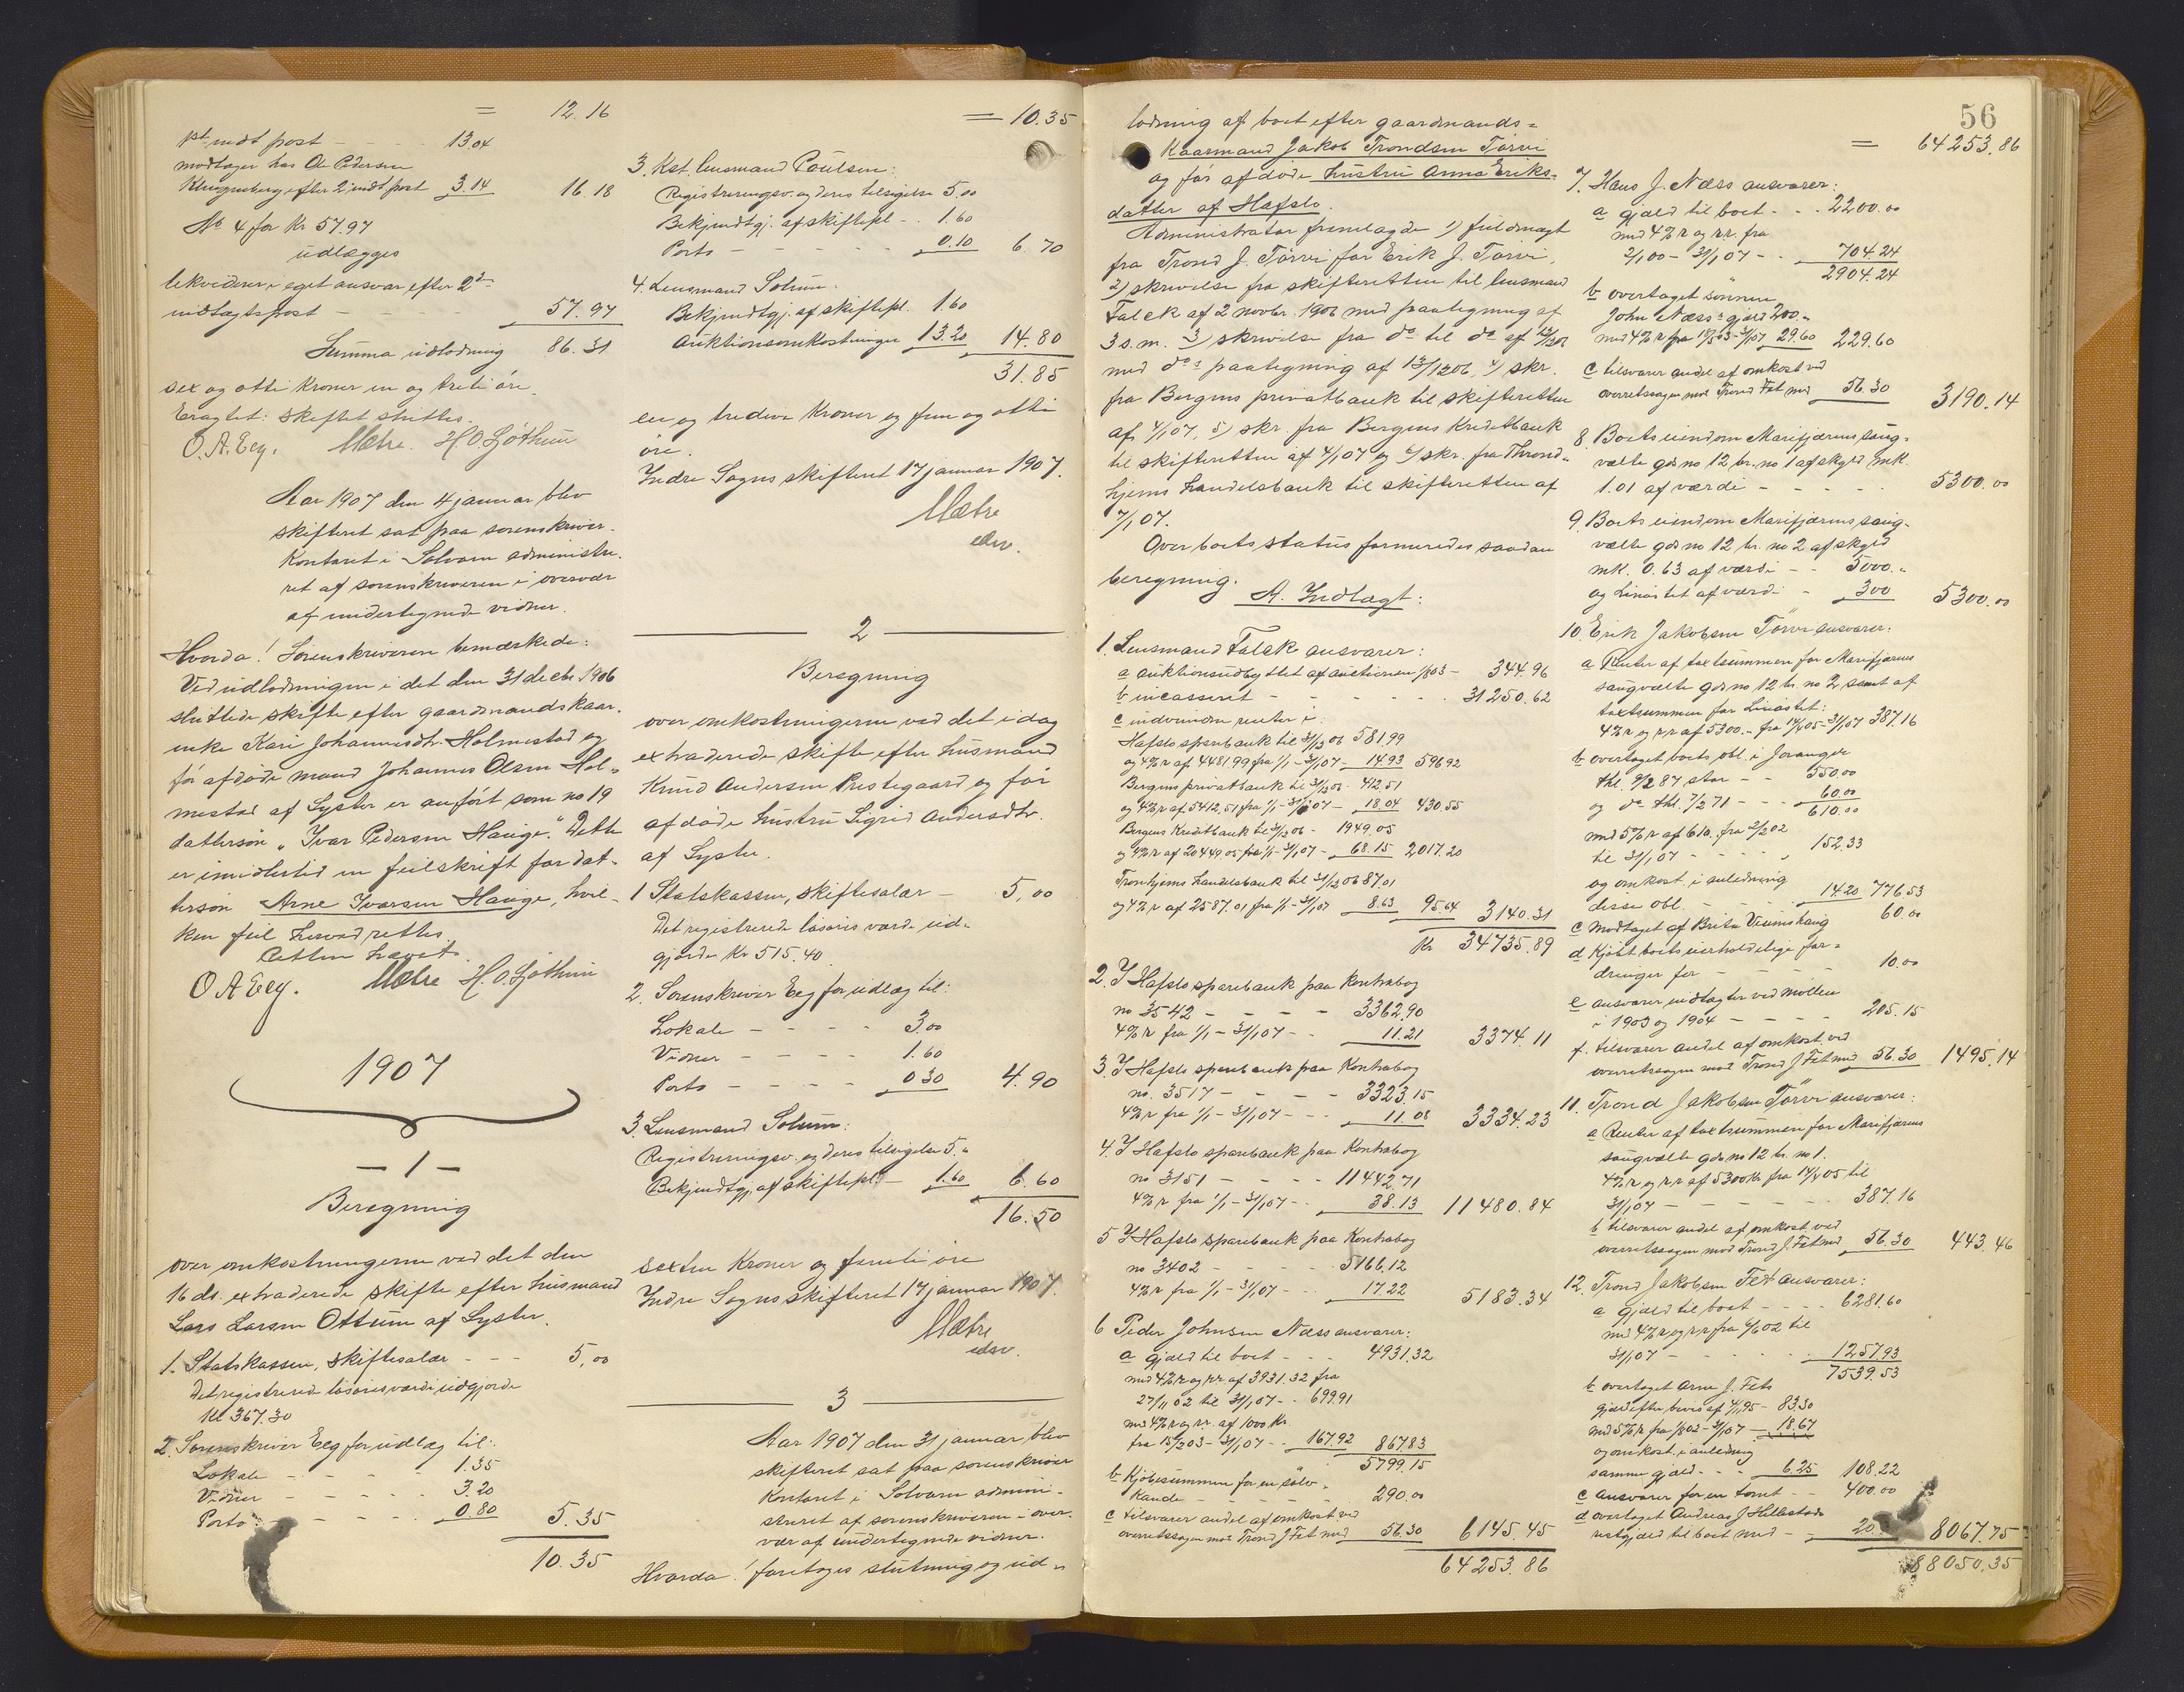 = 12.16
pst. indt post - - - 13.04
modtager hos Ole Pedersen
Klingenberg efter 2 indt. post 3.14 16.18
No 4 for Kr 57.97
udlægges
likviderer i eget ansvar efter 2den
indtægtspost - - - 57.97
Summa udlodning 86.31
sex og otti Kroner en og treti øre.
Eragtet: Skiftet sluttes.
O. A. Eeg. Mætre. H. O. Gjøthun
Aar 1907 den 4 januar blev
skifteret sat paa sorenskriver-
kontoret i Solvorn administre-
ret af sorenskriveren i overvær
af undertegnede vidner.
Hvorda! Sorenskriveren bemærkede:
Ved udlodningen i det den 31 decbr 1906
sluttede skifte efter gaardmandskaar-
enke Kari Johannesdtr. Holmestad og
før afdøde mand Johannes Olsen Hol-
mestad af Lyster er anført som no 19
dattersøn "Ivar Pedersen Hauge". Dette
er imidlertid en feilskrift for dat-
tersøn Arne Ivarsen Hauge, hvil-
ken feil herved rettes.
Retten hævet.
O A Eeg. Mætre H. O. Gjøthun
1907
- 1 -
Beregning
over omkostningerne ved det den
16 ds. extraderede skifte efter husmand
Lars Larsen Ottum af Lyster.
1. Statskassen, skiftesalær - - - 5,00
Det registrerede løsøres værdi udgjorde
Kr 367.30
2. Sorenskriver Eeg for udlæg til:
Lokale - - - - 1.35
Vidner - - - - 3.20
Porto - - - - 0.80 5.35
10.35
= 10.35
3. Kst. lensmand Poulsen:
Registreringsv. og deres tilsigelse 5.00
Bekjendtgj. af skiftepl - - 1.60
Porto - - - - 0.10 6.70
4. Lensmand Solum:
Bekjendtgj. af skiftepl. 1.60
Auktionsomkostninger 13.20 14.80
31.85
en og tredive Kroner og fem og otti
øre.
Indre Sogns skifteret 17 januar 1907.
Mætre
edsv.
2
Beregning
over omkostningerne ved det idag
extraderede skifte efter husmand
Knud Andersen Prestegaard og før
afdøde hustru Sigrid Andersdtr.
af Lyster.
1 Statskassen, skiftesalær - 5,00
Det registrerede løsøres værdi ud-
gjorde Kr 515.40
2. Sorenskriver Eeg for udlæg til:
Lokale - - - - 3.00
Vidner - - - - 1.60
Porto - - - - 0 30 4.90
3. Lensmand Solum:
Registreringsv. og deres tilsigelse 5."
Bekjendtgj. af skiftepl. - 1.60 6.60
16.50
sexten Kroner og femti øre
Indre Sogns skifteret 17 januar 1907.
Mætre
edsv.
3
Aar 1907 den 31 januar blev
skifteret sat paa sorenskriver
kontoret i Solvorn admini-
streret af sorenskriveren i over-
vær af undertegnede vidner.
Hvorda! foretoges slutning og ud-
56
lodning af boet efter gaardmands-
Kaarmand Jakob Trondsen Tørvi
og før afdøde hustru Anna Eriks-
datter af Hafslo.
Administrator fremlagde 1) fuldmagt
fra Trond J. Tørvi for Erik J. Tørvi,
2) skrivelse fra skifteretten til lensmand
Falck af 2 novbr. 1906 med paategning af
3 s.m. 3) skrivelse fra do til do af 12/1206
med dos paategning af 13/1206, 4) skr.
fra Bergens privatbank til skifteretten
af 4/1 07, 5) skr. fra Bergens Kreditbank
til skifteretten af 4/1 07 og 6/ skr. fra Thrond-
hjems Handelsbank til skifteretten af
7/1 07.
Over boets status formeredes saadan
beregning.
A. Indtægt:
1. Lensmand Falck ansvarer:
a auktionsudbyttet af auctionen /803 - 344.96
b incasseret - - - - 31250.62
c indvundne renter i:
Hafslo sparebank til 31/12 06 581.99
og 4% r af 4481.99 fra 1/1 - 31/1 07 - 14.93 596.92
Bergens privatbank til 31/12 06 - 412.51
og 4% r af 5412.51 fra 1/1 - 31/1 07 - 18.04 430.55
Bergens Kreditbank til 31/12 06 - 1949.05
og 4% r af 20449.05 fra 1/1 - 31/1 07 - 68.15 2017.20
Tronhjems Handelsbank til 31/12 06 87.01
og 4% r af 2587.01 fra 1/1 - 31/1 07 8.63 95.64 3140.31
Kr 34735.89
2. I Hafslo sparebank paa Kontrabog
no 3542 - - - - 3362.90
4% r fra 1/1 - 31/1 07 - - 11.21 3374.11
3. I Hafslo sparebank paa Kontrabog
no. 3517 - - - - 3323.15
4% r fra 1/1 - 31/1 07 - - - 11.08 3334.23
4. I Hafslo sparebank paa Kontrabog
no 3151 - - - - 11442.71
4% r fra 1/1 - 31/1 07 - - 38.13 11480.84
5 I Hafslo sparebank paa Kontrabog
no 3402 - - - - 5166.12
4% r fra 1/1 - 31/1 07 - - 17.22 5183.34
6 Peder Johnsen Næss ansvarer:
a gjæld til boet - - - 4931.32
med 4% r og rr. af 3931.32 fra
27/11 02 til 31/1 07 - - 699.91
med 4% r og rr. af 1000 Kr.
fra 15/2 03 - 31/1 07 - - 167.92 867.83
5799.15
b Kjøbesummen for en sølv-
kande - - - - 290.00
c tilsvarer andel af omkost ved
overretssagen mod Trond J Fet med 56.30 6145.45
64253.86
= 64253.86
7. Hans J. Næss ansvarer:
a gjæld til boet - - - 2200.00
med 4% r og rr. fra
2/1 00 - 31/1 07 - - 704.24
2904.24
b overtaget sønnen
John Næss's gjæld 200.-
med 4% r fra 15/5 03 - 31/1 07 29.60 229.60
c tilsvarer andel af omkost ved
overretssagen mod Trond Fet med 56.30 3190.14
8 Boets eiendom Marifjærens saug-
vælte gds no 12 br. no 1 af skyld mk.
1.01 af værdi - - - - 5300.00
9. Boets eiendom Marifjærens saug-
vælte gds no 12 br. no 2 af skyld
mk. 0.63 af værdi - - 5000.-
og Linåstet af værdi - 300 5300.00
10. Erik Jakobsen Tørvi ansvarer:
a Renter af taxtsummen for Marifjærens
saugvælte gds no 12 br. no 2 samt af
taxtsummen for Linåstet:
4% r og rr af 5300.- fra 14/4 05 - 31/1 07 387.16
b overtaget boets obl. i Joranger
thl. 9/2 87 stor - - 550.00
og do thl. 7/2 71 - - - 60.00
610.00
med 5% r af 610. fra 2/2 02
til 31/1 07 - - - - 152.33
og omkost. i anledning
disse obl. - - - - 14.20 776.53
c Modtaget af Brita Veumshaug 60.00
d Kjøbt boets uerholdelige for-
dringer for - - - - 10.00
e ansvarer indtægter ved møllen
i 1903 og 1904 - - - - 205.15
f. tilsvarer andel af omkost. ved
overretssagen mod Trond J Fet med 56.30 1495.14
11. Trond Jakobsen Tørvi ansvarer:
a Renter af taxtsummen for Marifjærens
saugvælte gds no 12 br. no 1.
4% r og rr af 5300 Kr fra 14/4 05 til
31/1 07 - - - - 387.16
b tilsvarer andel af omkost ved
overretssagen mod Trond J. Fet med 56.30 443.46
12. Trond Jakobsen Fet ansvarer:
a gjæld til boet - - - - 6281.60
med 4% r og rr fra 02 til
31/1 07 - - - - 1257.93
7539.53
b overtaget Arne J. Fets
gjæld efter bevis af 4/1 95 - 83.30
med 5% r fra 1/8 02 - 31/1 07 - 18.67
og omkost. i anledning
samme gjæld - - - 6.25 108.22
c Ansvarer for en tomt - - 400.00
d overtaget Andreas J Hillestads
restgjæld til boet med - - 20. 8067.75
88050.35